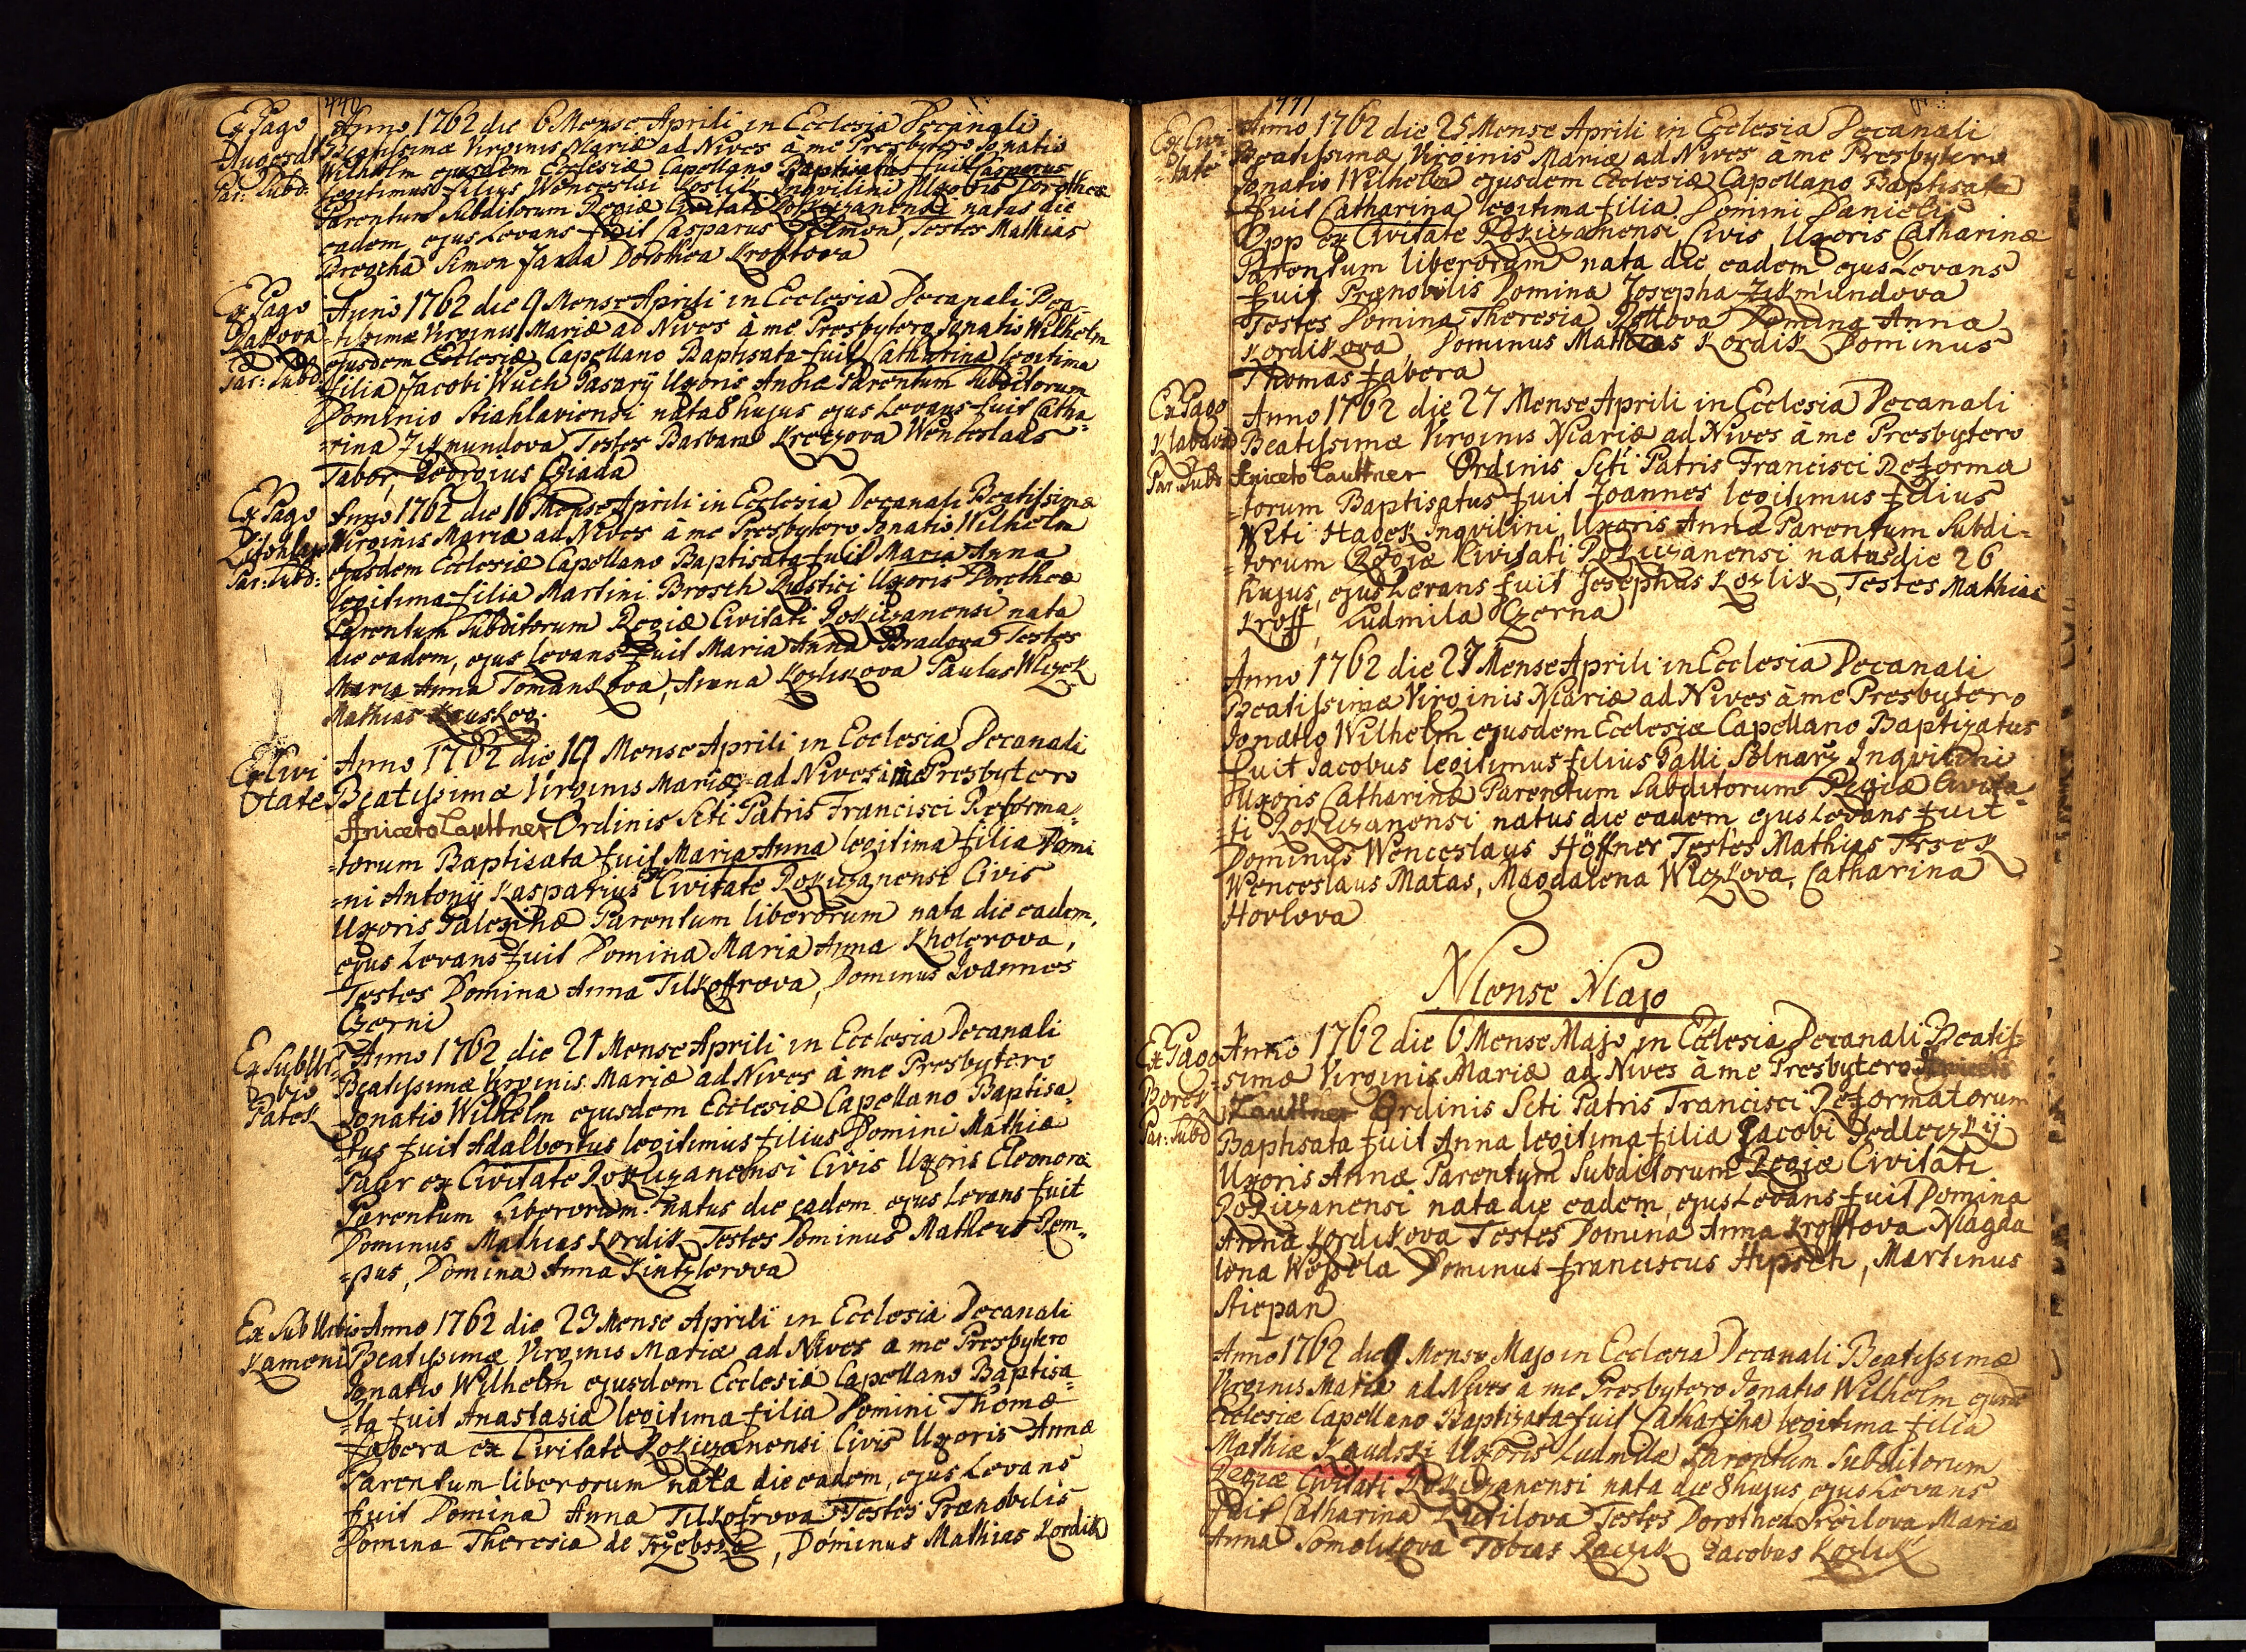 440
Ex Pago
Par: Subd:
Anno 1762 die 6 Mense Aprili in Ecclesia Decanali
Beatissimæ Virginis Mariæ ad Nives à me Presbytero Ignatio
Wilhelm ejusdem Ecclesiæ Capellano Baptisatus fuit Casparus
legitimus filius Wenceslai Koslik Inqvilini Uxoris Dorotheæ
Parentum Subditorum Regiæ Civitati Rokiczanensi natus die
eadem, ejus Levans fuit Casparus Testes Mathias
Simon Janda Dorothea Kroftova
Ex Pago
Rakova
Par: Subd:
Anno 1762 die 9 Mense Aprili in Ecclesia Decanali Bea-
-tissimæ Virginis Mariæ ad Nives à me Presbytero Ignatio Wilhelm
ejusdem Ecclesiæ Capellano Baptisata fuit Catharina legitima
filia Jacobi Wuch Uxoris Annæ Parentum Subditorum
Dominio Stiahlaviensi nata 8 hujus ejus Levans fuit Catha-
-rina Zikmundova Testes Barbara Wenceslaus
Tabor, Georgius Cziada
Ex Pago
Par: Subd:
Anno 1762 die 16 Mense Aprili in Ecclesia Decanali Beatissimæ
Virginis Mariæ ad Nives à me Presbytero Ignatio Wilhelm
ejusdem Ecclesiæ Capellano Baptisata fuit Maria Anna
legitima filia Martini Brosch Rustici Uxoris Dorotheæ
Parentum Subditorum Regiæ Civitati Rokiczanensi nata
die eadem, ejus Levans fuit Maria Anna Bradova Testes
Maria Anna Tomankova, Anna Koslikova Paulus Wlczek
Mathias
Ex Civi
tate
Anno 1762 die 19 Mense Aprili in Ecclesia Decanali
Beatissimæ Virginis Mariæ ad Nives à me Presbytero
Aniceto Lauttner Ordinis Scti Patris Francisci Reforma-
-torum Baptisata fuit Maria Anna legitima filia Domi
-ni Antonij Kasparius ex Civitate Rokiczanensi Civis
Uxoris Parentum liberorum nata die eadem,
ejus Levans fuit Domina Maria Anna Kholerova,
Testes Domina Anna Tilkoffrova, Dominus Joannes
Czerni
Ex SubUr-
-bio
Patek
Anno 1762 die 21 Mense Aprili in Ecclesia Decanali
Beatissimæ Virginis Mariæ ad Nives à me Presbytero
Ignatio Wilhelm ejusdem Ecclesiæ Capellano Baptisa-
-tus fuit Adalbertus legitimius filius Domini Mathiæ
Paur ex Civitate Rokiczanensi Civis Uxoris Eleonoræ
Parentum Liberorum natus die eadem ejus Levans fuit
Dominus Mathias Kordik Testes Dominus Matheus Rem-
-pus, Domina Anna Kintzlerova
Ex Sub Urbio
Kameni
Anno 1762 die 23 Mense Aprili in Ecclesia Decanali
Beatissimæ Virginis Mariæ ad Nives a me Presbytero
Ignatio Wilhelm ejusdem Ecclesiæ Capellano Baptisa-
-ta fuit Anastasia legitima filia Domini Thomæ
Fabera ex Civitate Rokiczanensi Civis Uxoris Annæ
Parentum liberorum nata die eadem, ejus Levans
fuit Domina Anna Tilkofrova Testes Prænobilis
Domina Theresia de Trzebska, Dominus Mathias Kordik
441
Ex Civi-
-tate
Anno 1762 die 25 Mense Aprili in Ecclesia Decanali
Beatissimæ Virginis Mariæ ad Nives à me Presbytero
Ignatio Wilhelm ejusdem Ecclesiæ Capellano Baptisata
fuit Catharina legitima filia Domini Danielis
Opp ex Civitate Rokiczanensi Civis Uxoris Catharinæ
Parentum liberorum nata die eadem ejus Levans
fuit Prænobilis Domina Josepha Zikmundova
Testes Domina Theresia Domina Anna
Kordikova, Dominus Mathias Kordik Dominus
Thomas Fabera
Ex Pago
Klabava
Par: Subd
Anno 1762 die 27 Mense Aprili in Ecclesia Decanali
Beatissimæ Virginis Mariæ ad Nives à me Presbytero
Aniceto Lauttner Ordinis Scti Patris Francisci Reforma
-torum Baptisatus fuit Joannes legitimus filius
Witi Hadek Inqvilini Uxoris Annæ Parentum Subdi-
-torum Regiæ Civitati Rokiczanensi natus die 26
hujus, ejus Levans fuit Josephus Kozlik, Testes Mathias
Kroff, Ludmila Czerna
Anno 1762 die 27 Mense Aprili in Ecclesia Decanali
Beatissimæ Virginis Mariæ ad Nives à me Presbytero
Ignatio Wilhelm ejusdem Ecclesiæ Capellano Baptizatus
fuit Jacobus legitimus filius Galli Solnarz Inqvilini
Uxoris Catharinæ Parentum Subditorum Regiæ Civita-
-ti Rokiczanensi natus die eadem ejus Levans fuit
Dominus Wenceslaus Höffner Testes Mathias Trsek
Wenceslaus Matas, Magdalena Wlczkova, Catharina
Hovlova
Mense Majo
Ex Pago
Borek
Par: Subd
Anno 1762 die 6 Mense Majo in Ecclesia Decanali Beatis-
-simæ Virginis Mariæ ad Nives à me Presbytero Aniceto
Lauttner Ordinis Scti Patris Francisci Reformatorum
Baptisata fuit Anna legitima filia Jacobi Sedleczkij
Uxoris Annæ Parentum Subditorum Regiæ Civitati
Rokiczanensi nata die eadem, ejus Levans fuit Domina
Anna Kordikova Testes Domina Anna Krofftova Magda
lena Wopela Dominus Franciscus Hipsch, Martinus
Stiepan
Anno 1762 die 9 Mense Majo in Ecclesia Decanali Beatissimæ
Virginis Mariæ ad Nives à me Presbytero Ignatio Wilhelm ejusd
Ecclesiæ Capellano Baptizata fuit Catharina legitima filia
Mathiæ Kaudski Uxoris Ludmilæ Parentum Subditorum
Regiæ Civitati Rokiczanensi nata die 8 hujus ejus Levans
fuit Catharina Testes Dorothea Maria
Anna Tobias Jacobus Kozlik